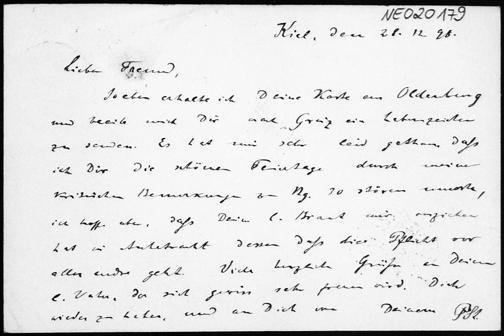 NEO20179
Kiel, den 28. 12 98.
Lieber Freund,
Soeben erhalte ich Deine Karte aus Oldenburg
und beeile mich Dir nach Greiz ein Lebenszeichen
zu senden. Es hat mir sehr leid gethan, daß
ich Dir die schönen Feiertage durch meine
kritischen Bemerkungen zu Bg. 30 stören musste,
ich hoffe aber, daß Deine l. Braut mir verziehen
hat in Anbetracht dessen daß dies Pflicht vor
alles andre geht. Viele herzliche Grüße an Deinen
l. Vater, der sich gewiss sehr freuen wird, Dich
wieder zu haben, und an Dich von Deinem